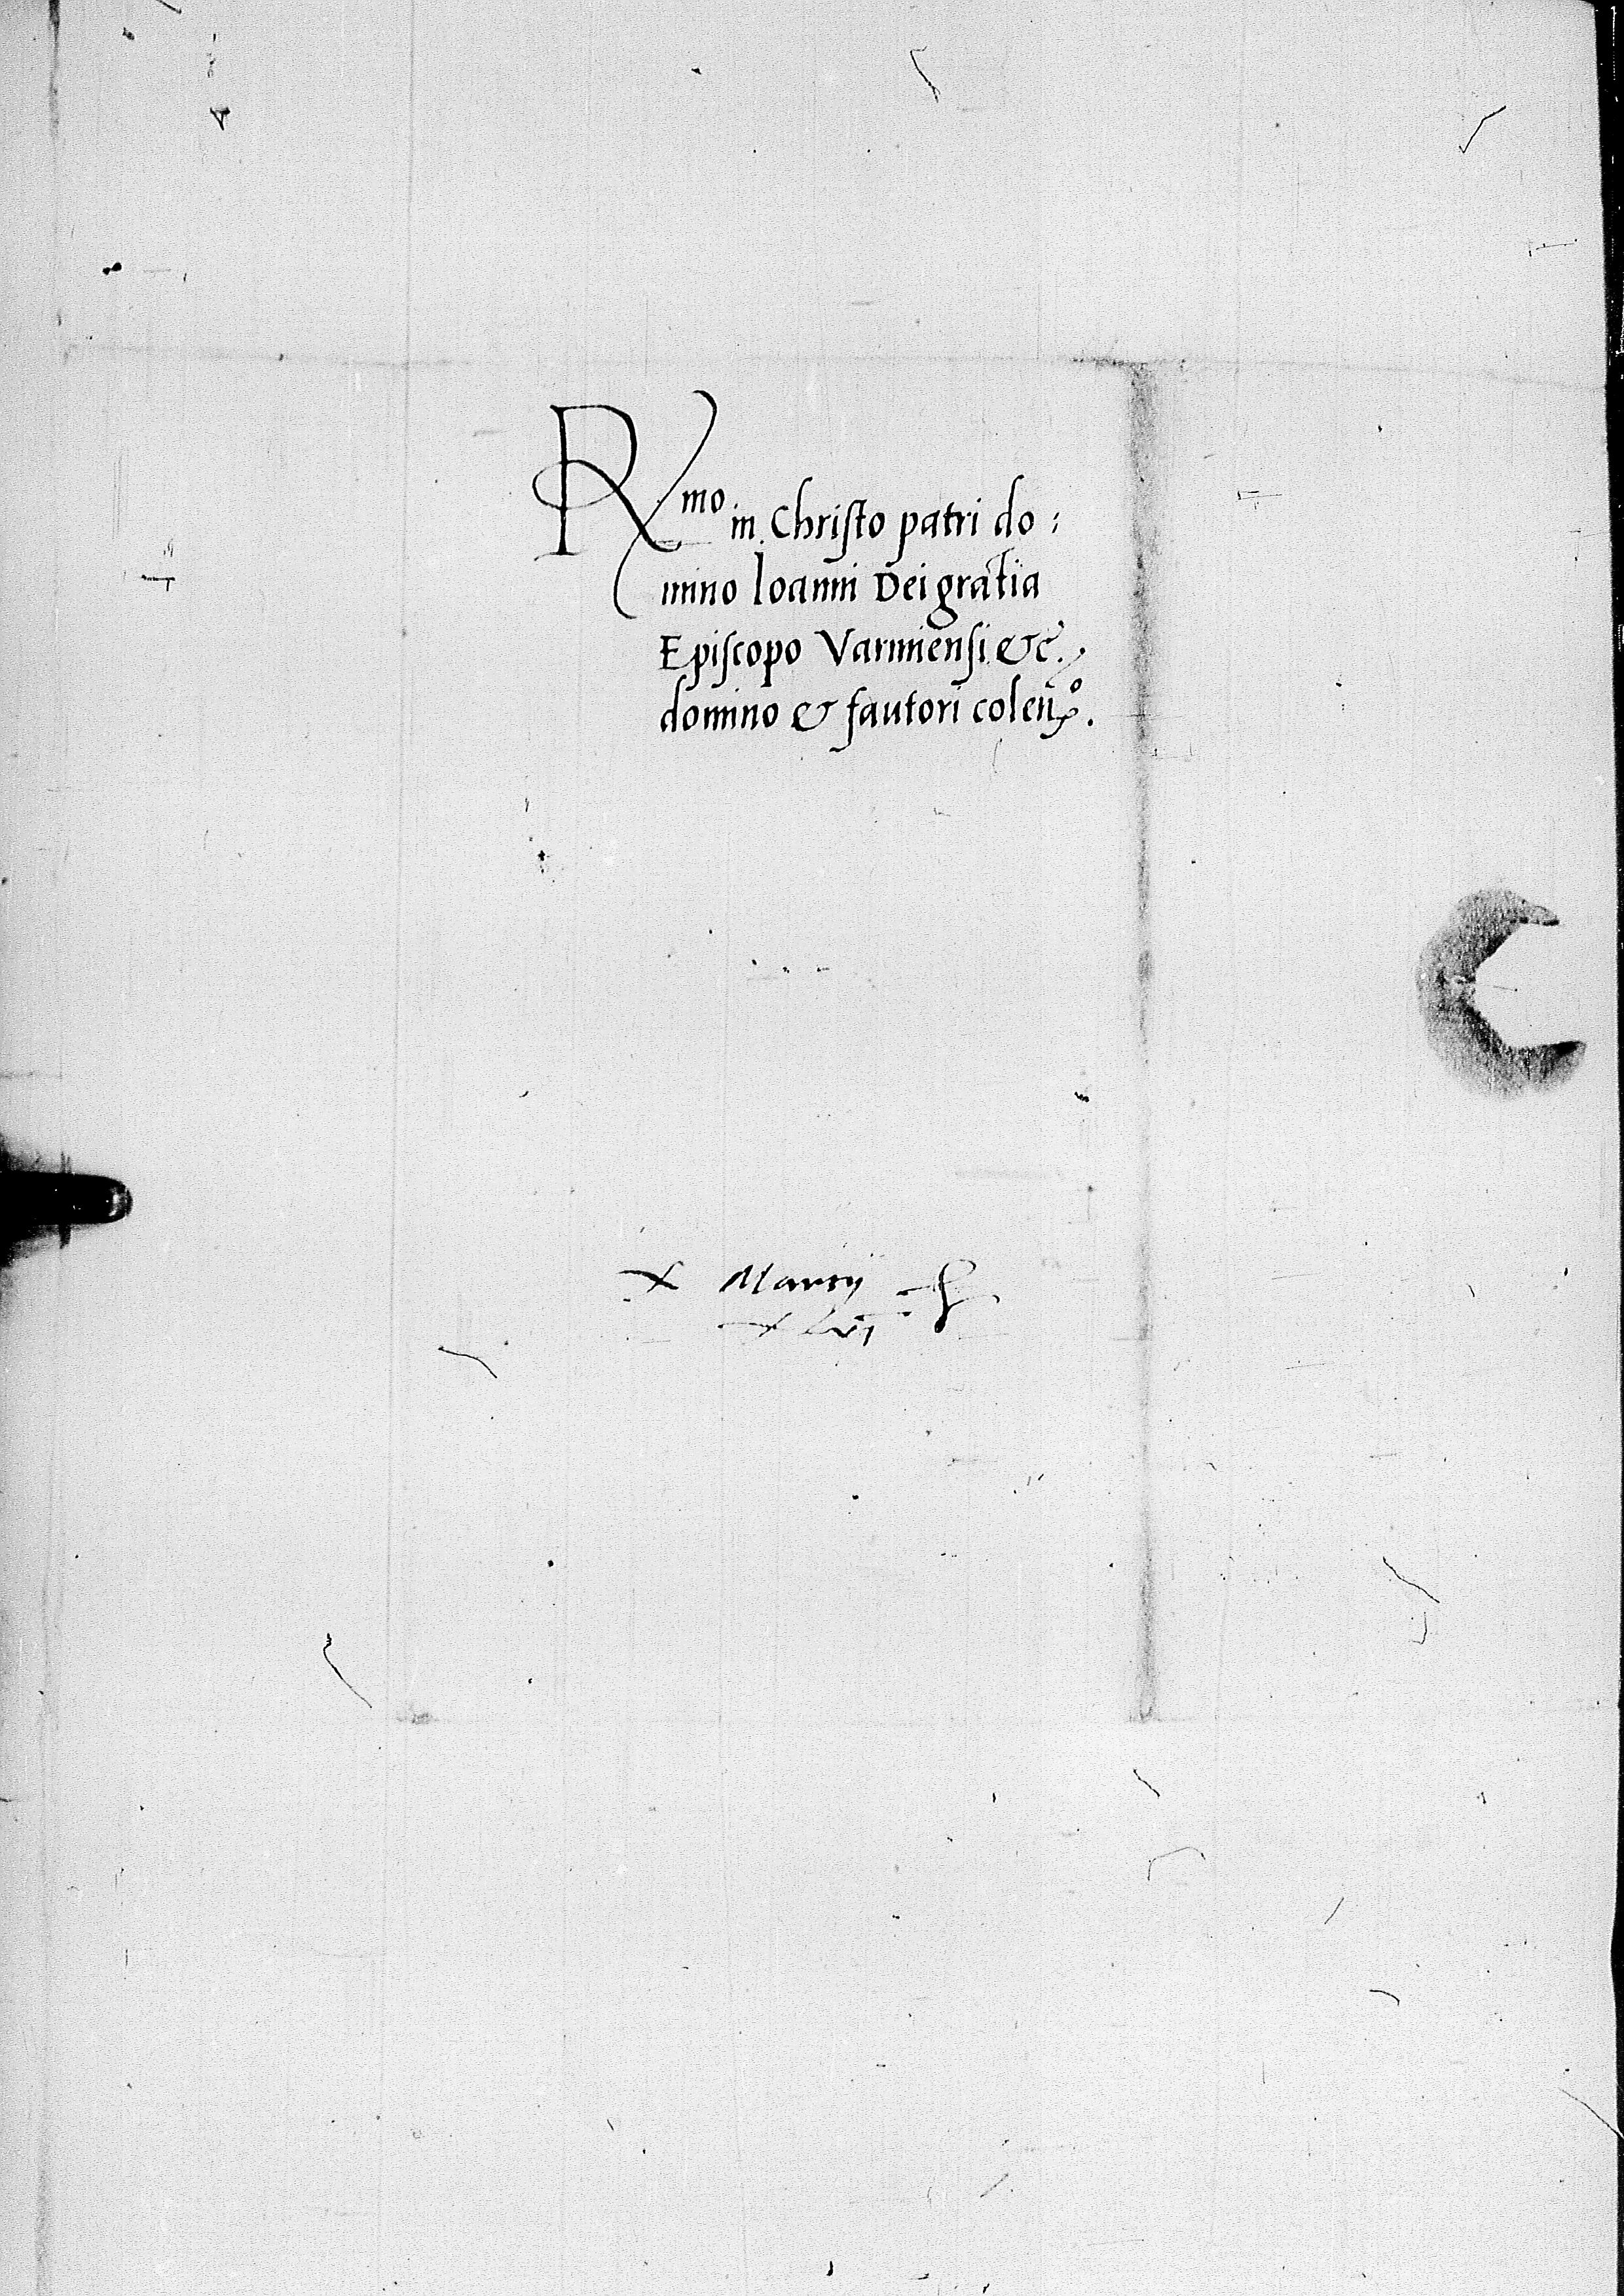 Rmo in Christo patri do:
mino Ioanni Dei gratia
Episcopo Varmiensi &c.
domino & fautori colen.º
x Martij
xlvi